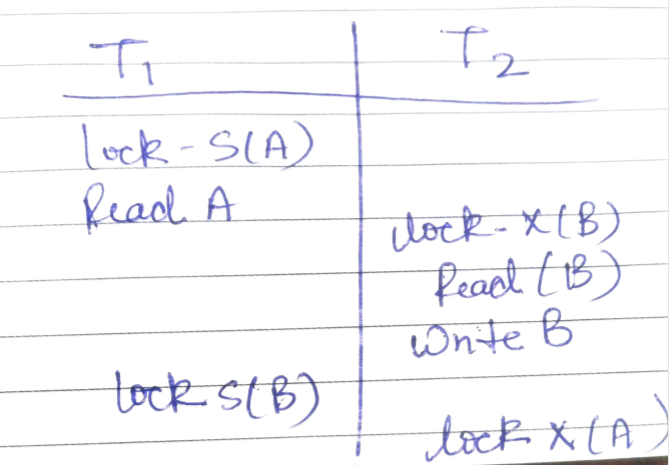 T1 T2
lock-S(A)
Read A
lock-X(B)
Read (B)
Write B
lock S(B)
lock X (A)